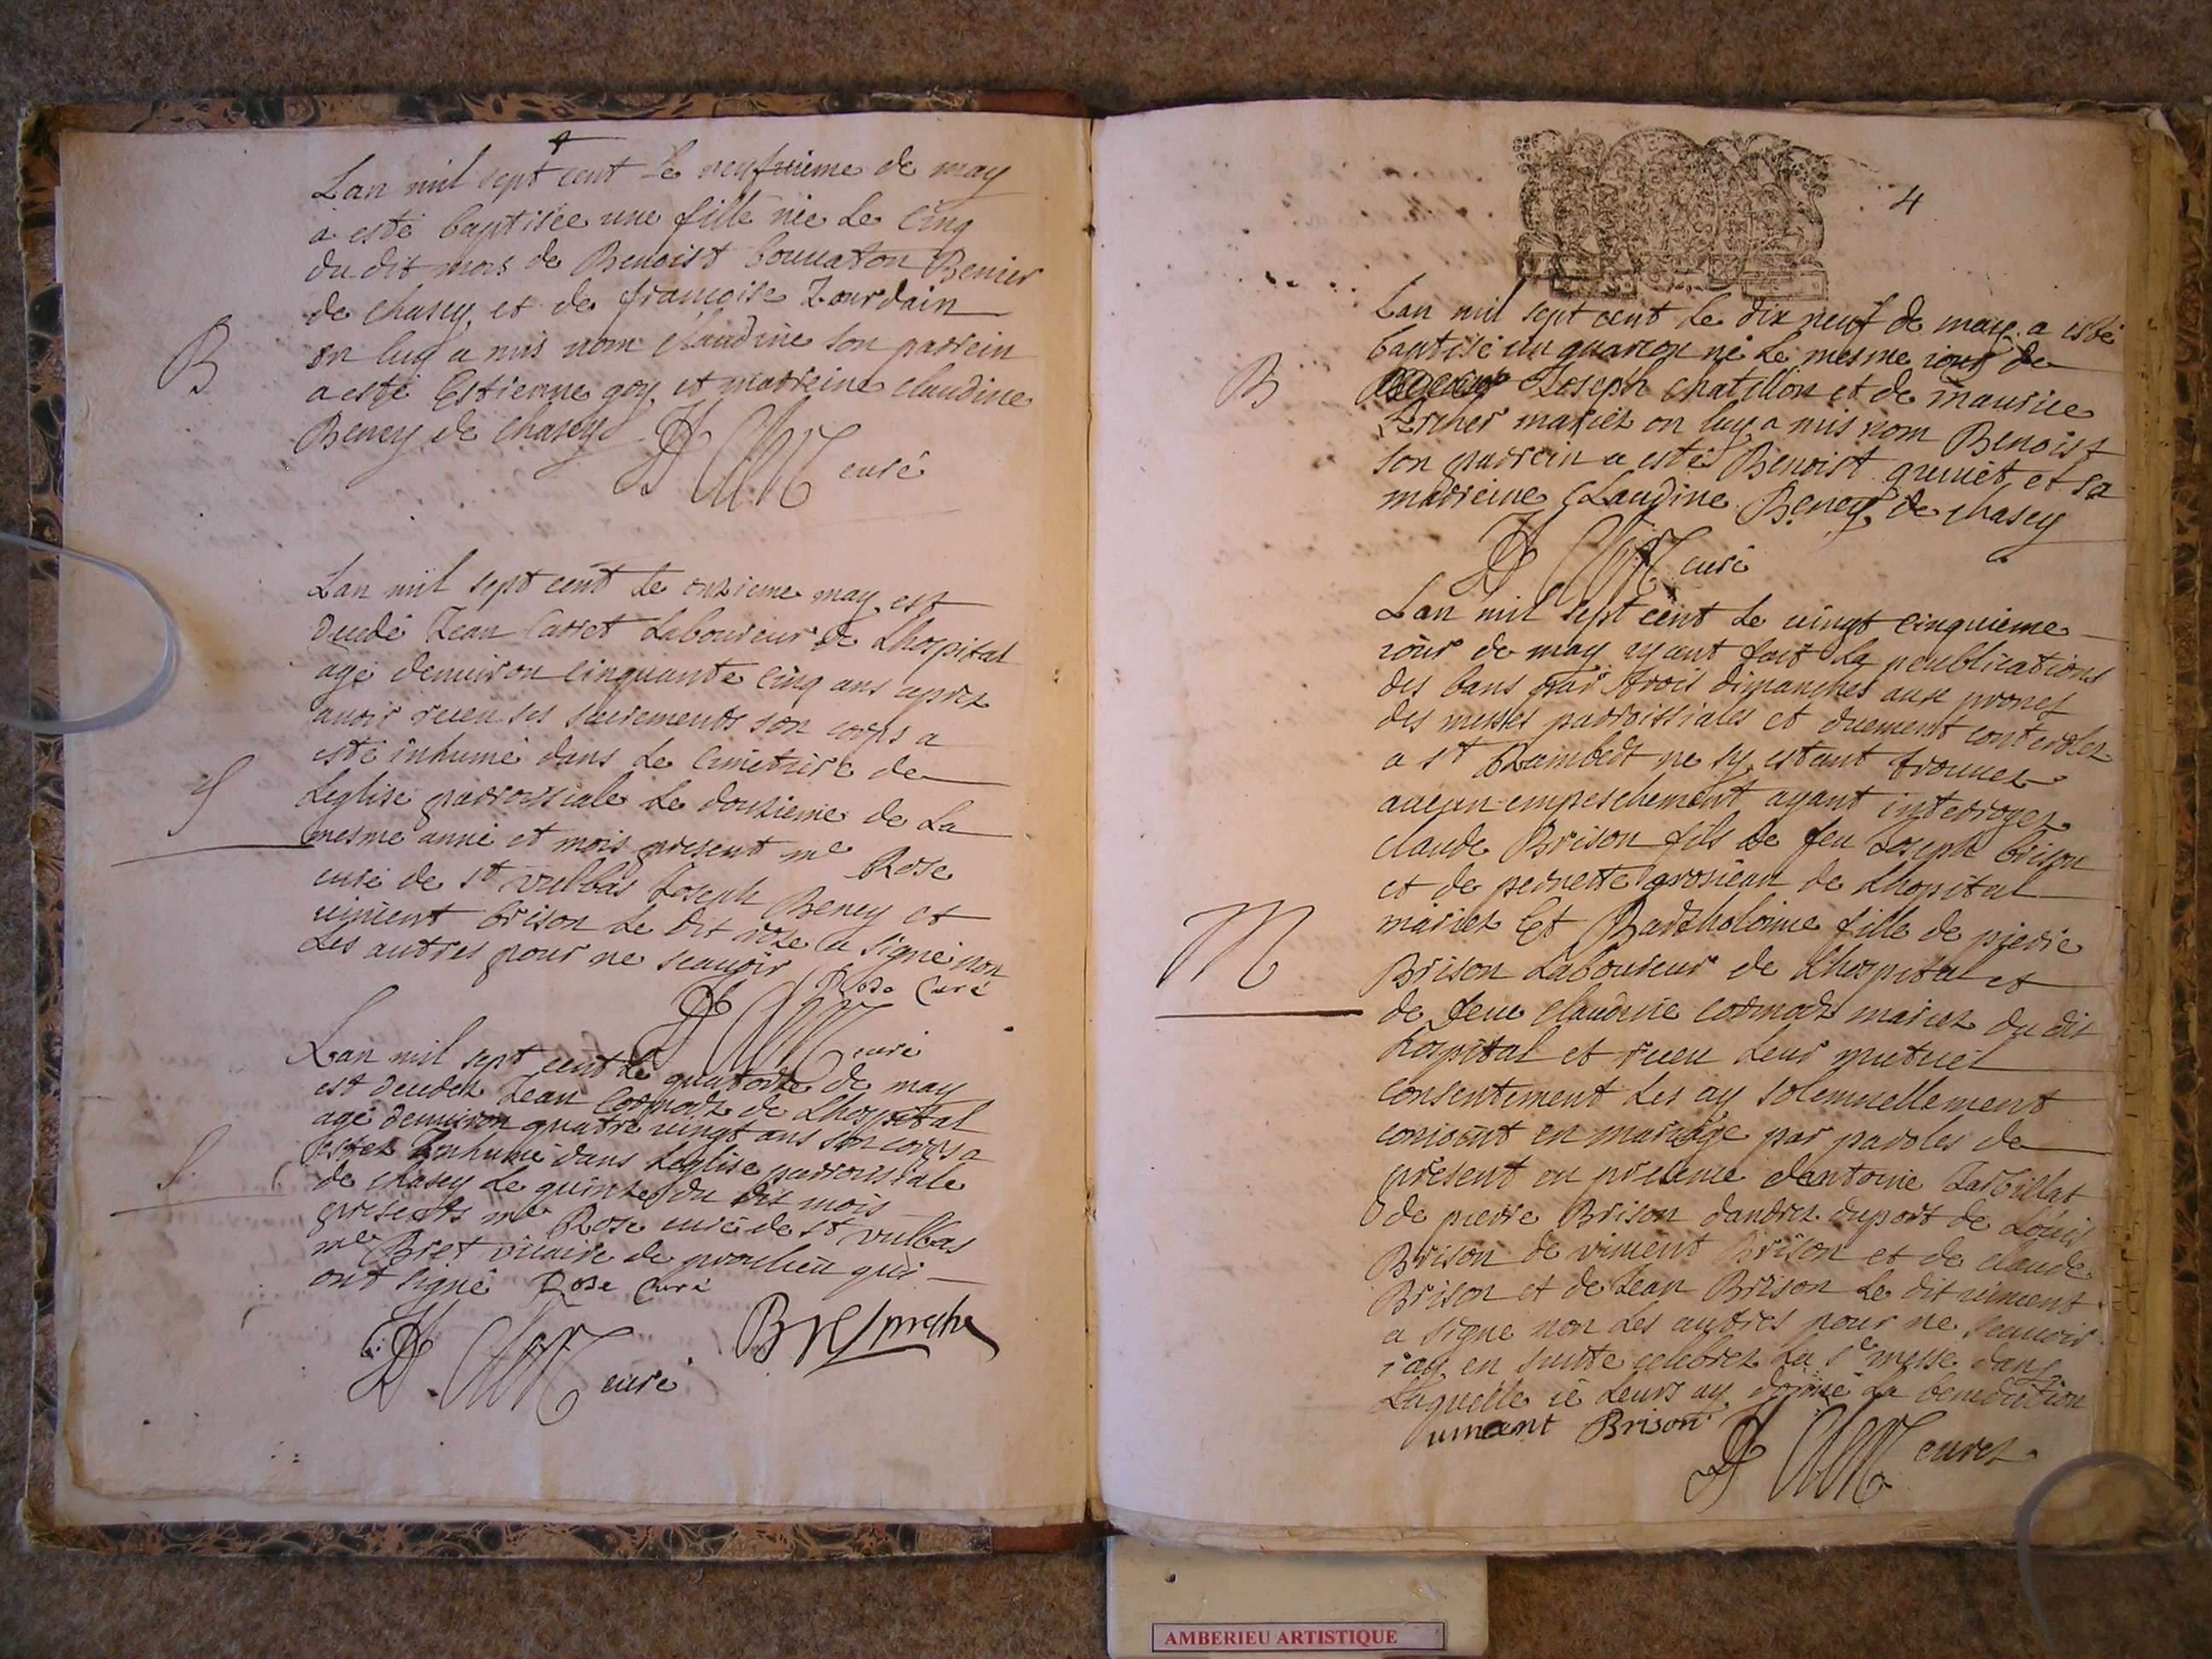 Lan mil sept cent Le neufuieme de may
a esté baptisée une fille née Le Cinq
du dit mois de Benoist bouuaton Benier
de chasey et de francoise Iourdain
on luy a mis nom claudine son parrein
a esté Estienne goy et marreine claudine
Beney de chasey
B
curé
Lan mil sept cent Le onzieme may est
Jean Carret Laboureur de Lhospital
agé denuiron cinquante cinq ans aprez
auoir receu ses sacrements son corps a
esté inhumé dans Le Cimetiere de
Leglise parroissiale Le douzieme de La
mesme anné et mois present me Rose
curé de st vulbas Joseph Beney et
uincent brison Le dit rose a signé non
Les autres pour ne scauoir Rose Curé
S
curé
Lan mil sept cent Le quatorze de may
est decedez Jean Cormoz de Lhospital
agé denuiron quatre uingt ans son corps a
estez Inhumé dans Leglise parroissiale
de chasey Le quinze du dit mois
presents me Rose curé de st vulbas
me Bret vicaire de proulieu qui
ont signé Rose Curé
S
curé
Bret prestre
4
Lan mil sept cent Le dix neuf de may a esté
baptisé un guarcon né Le mesme iour de
Joseph chatillon et de maurice
mariez on luy a mis nom Benoist
son parrein a esté Benoist greniet et sa
marreine Claudine Beney de chasey
B
curé
Lan mil sept cent Le uingt cinquieme
iour de may ayant fait La peublications
des bans par trois dimanches aux prones
des messes parroissiales et duement controlez
a st Rambert ne sy estant trouuez
aucun empeschement ayant interrogez
claude Brison fils de feu Joseph brison
et de pernette grosiean de Lhopital
mariez Et Bartholomie fille de pierre
Brison Laboureur de Lhospital et
de feue claudine cormoz mariez du dit
hospital et receu Leur mutuel
consentement Les ay solemnellement
conioint en mariage par paroles de
present en presence dantoine Iarbillat
de pierre Brison dandrez duport de Louis
Brison de vincent Brison et de claude
Brison et de Jean Brison Le dit uincent
a signe non Les autres pour ne scauoir
iay en suitte celebrez La ste messe dans
Laquelle ie Leurs ay donné La benediction
M
uincent Brison
curez
AMBERIEU ARTISTIQUE